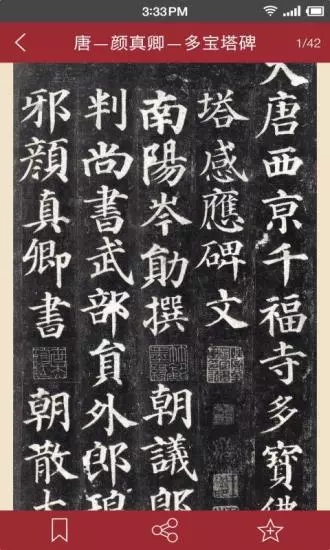 3:33PM
唐—颜真卿—多宝塔碑
1/42
大唐西亰千福寺多寶佛
塔感應碑文
南陽岑勛撰 朝議郎
判尚書武部貟外郎琅
邪顏真卿書 朝散大